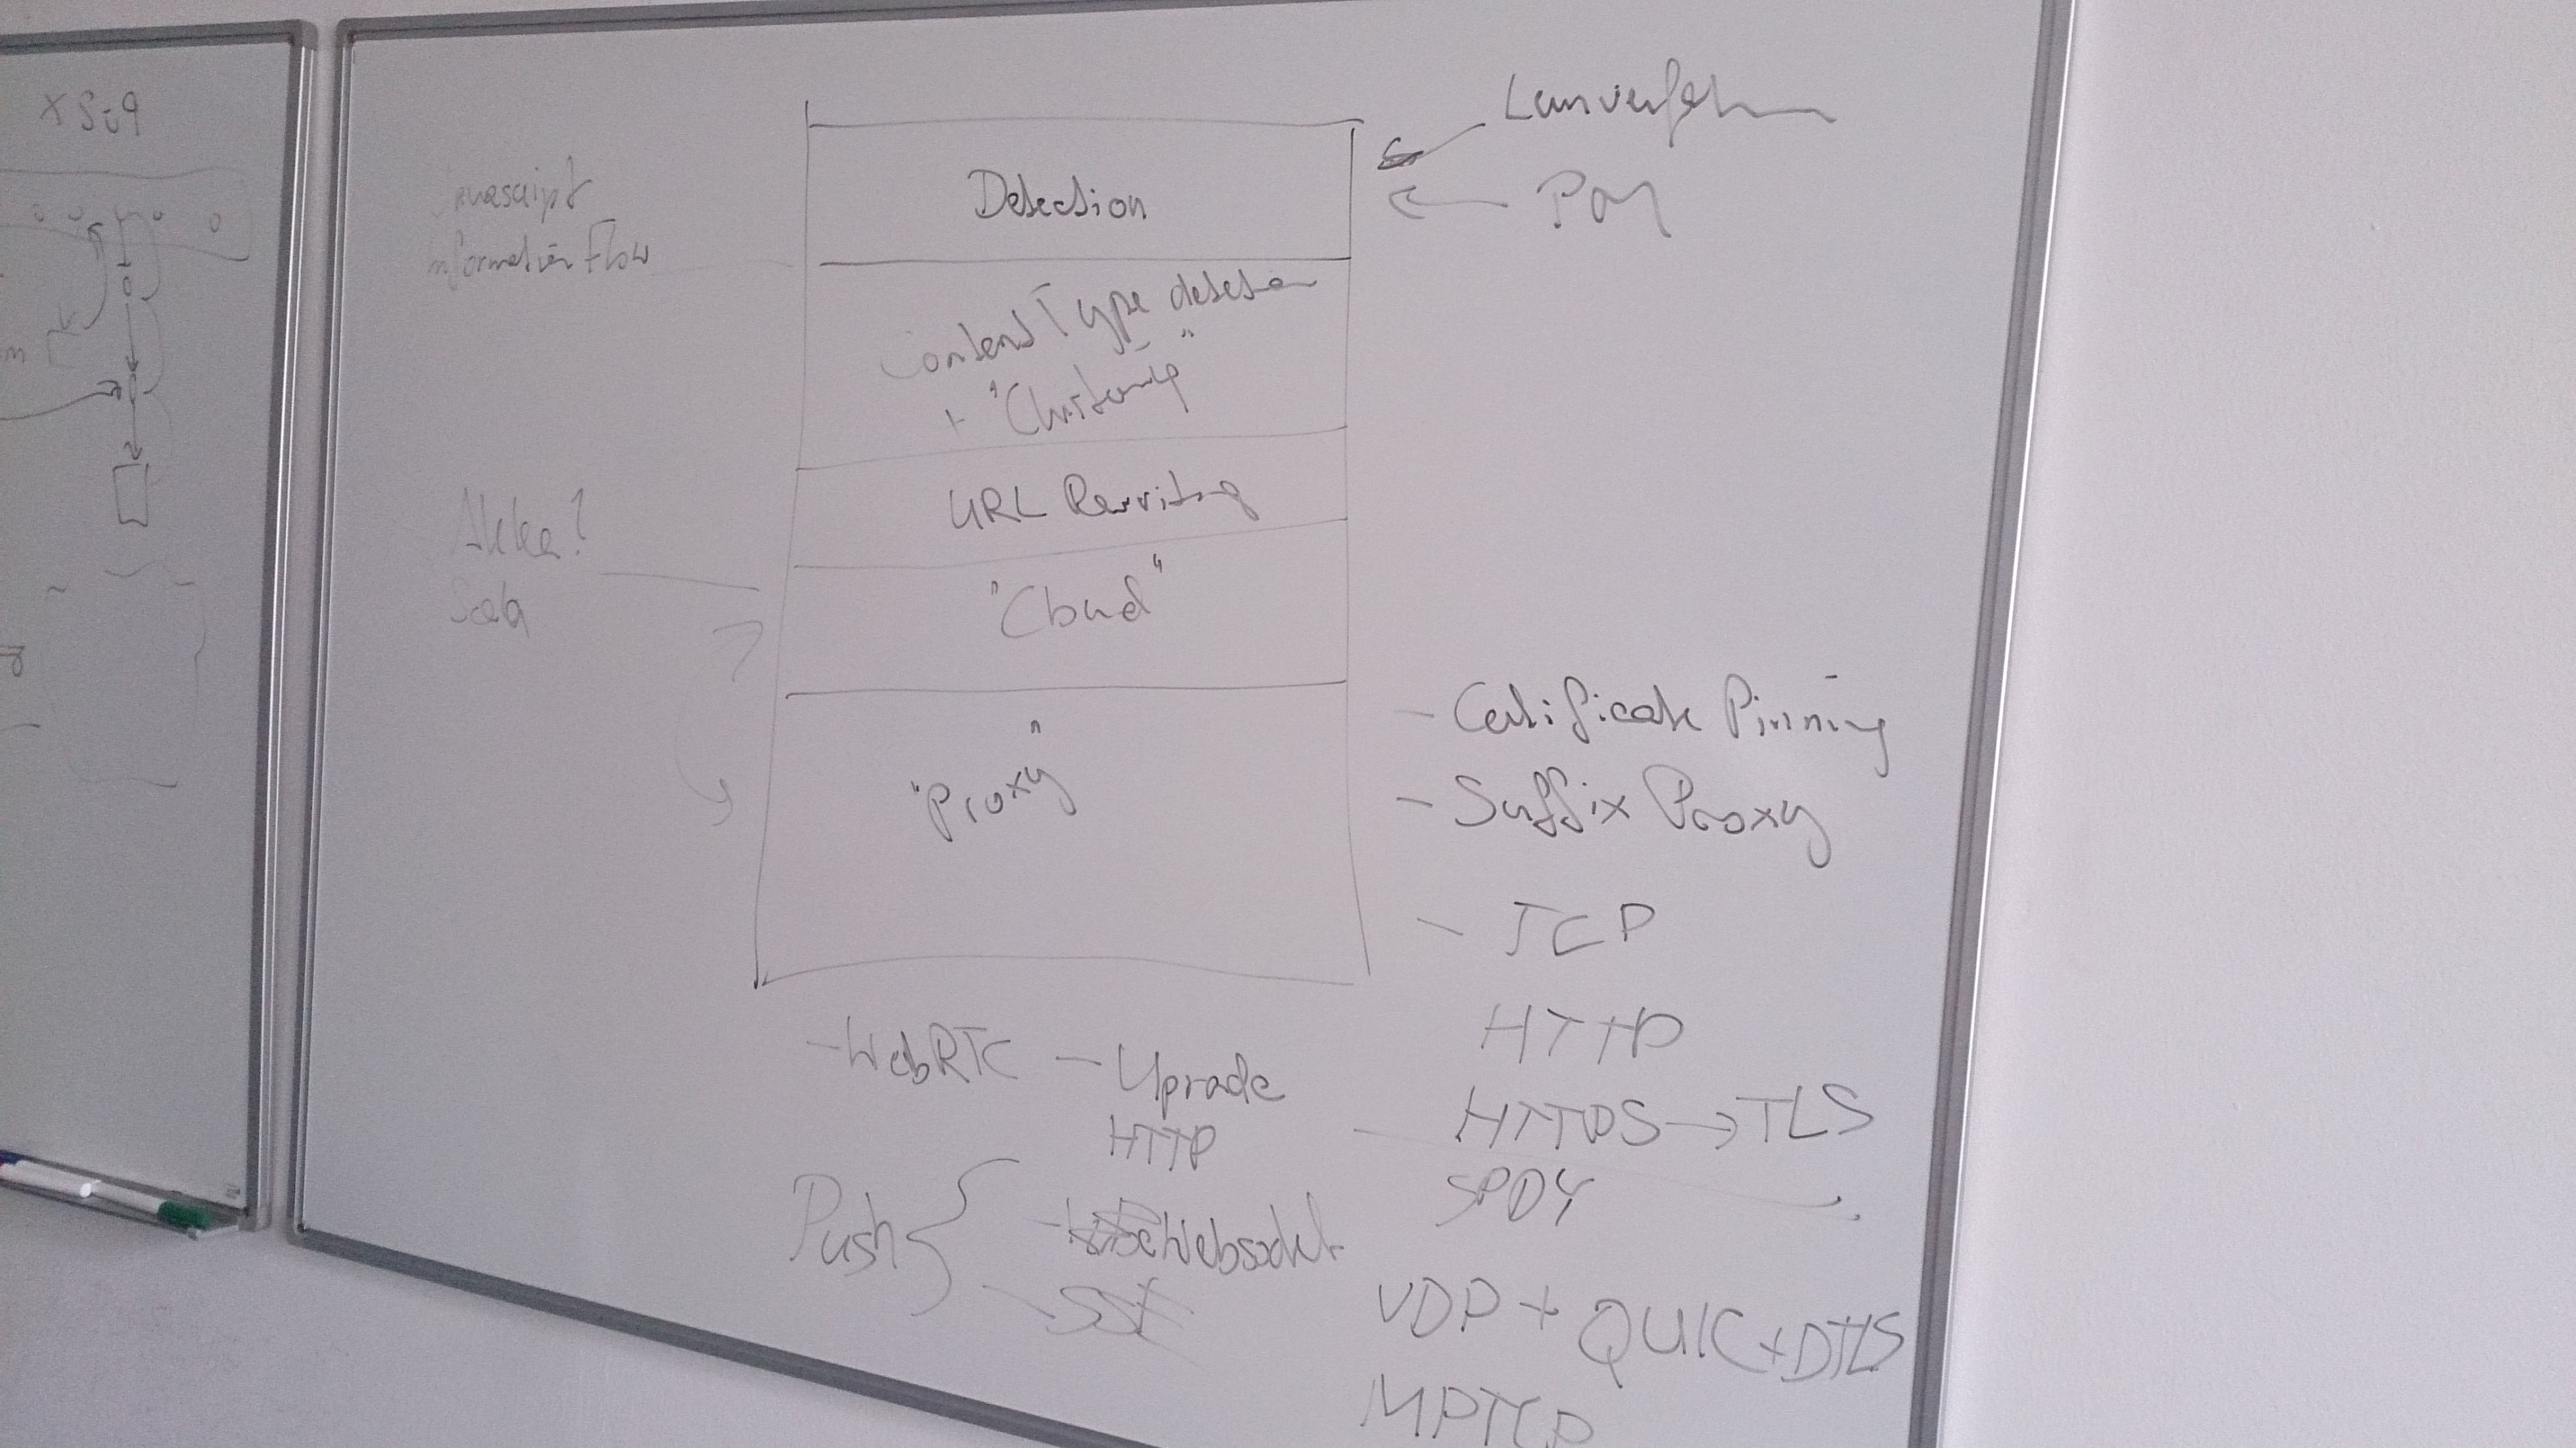 Javascript
Information Flow
Akka?
Scala
Detection
Content Type detection
+ "Clustering"
URL Rewriting
"Cloud"
"Proxy"
Lernverfahren
- Certificate Pinning
- Suffix Proxy
- TCP
HTTP
HTTPS → TLS
SPDY
UDP + QUIC + DTLS
MPTCP
- WebRTC
- Uprade
HTTP
Push {
- Websocket
- SSE